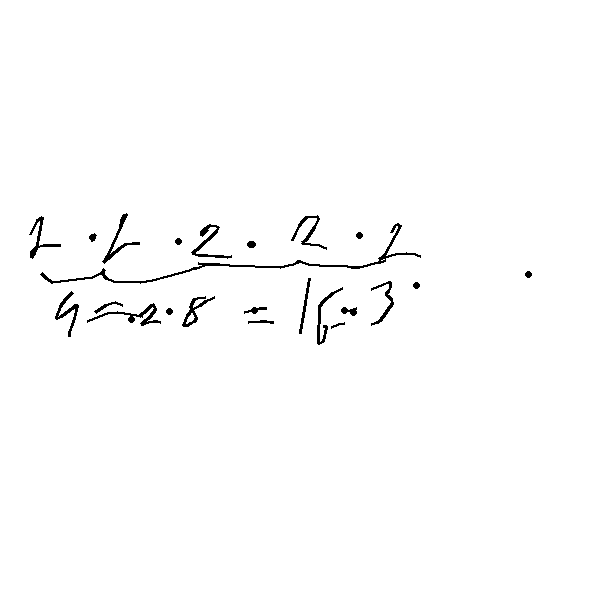 2 · 2 · 2 · 2 · 2
4 = · 2 · 8 = 16 · 3